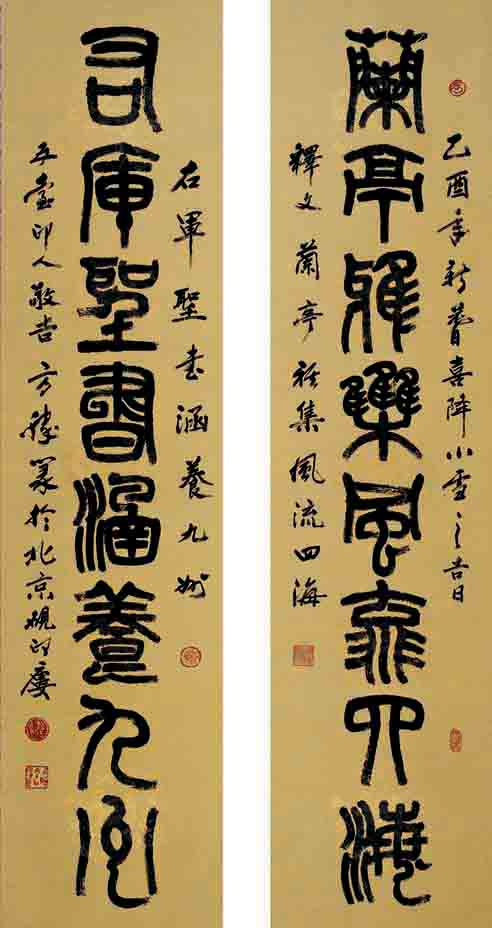 乙酉年新春喜降小雪之吉日
蘭亭雅集風流四海
釋文 蘭亭雅集風流四海
右軍聖書涵養九州
右軍聖書涵養九州
五臺印人 篆於北京